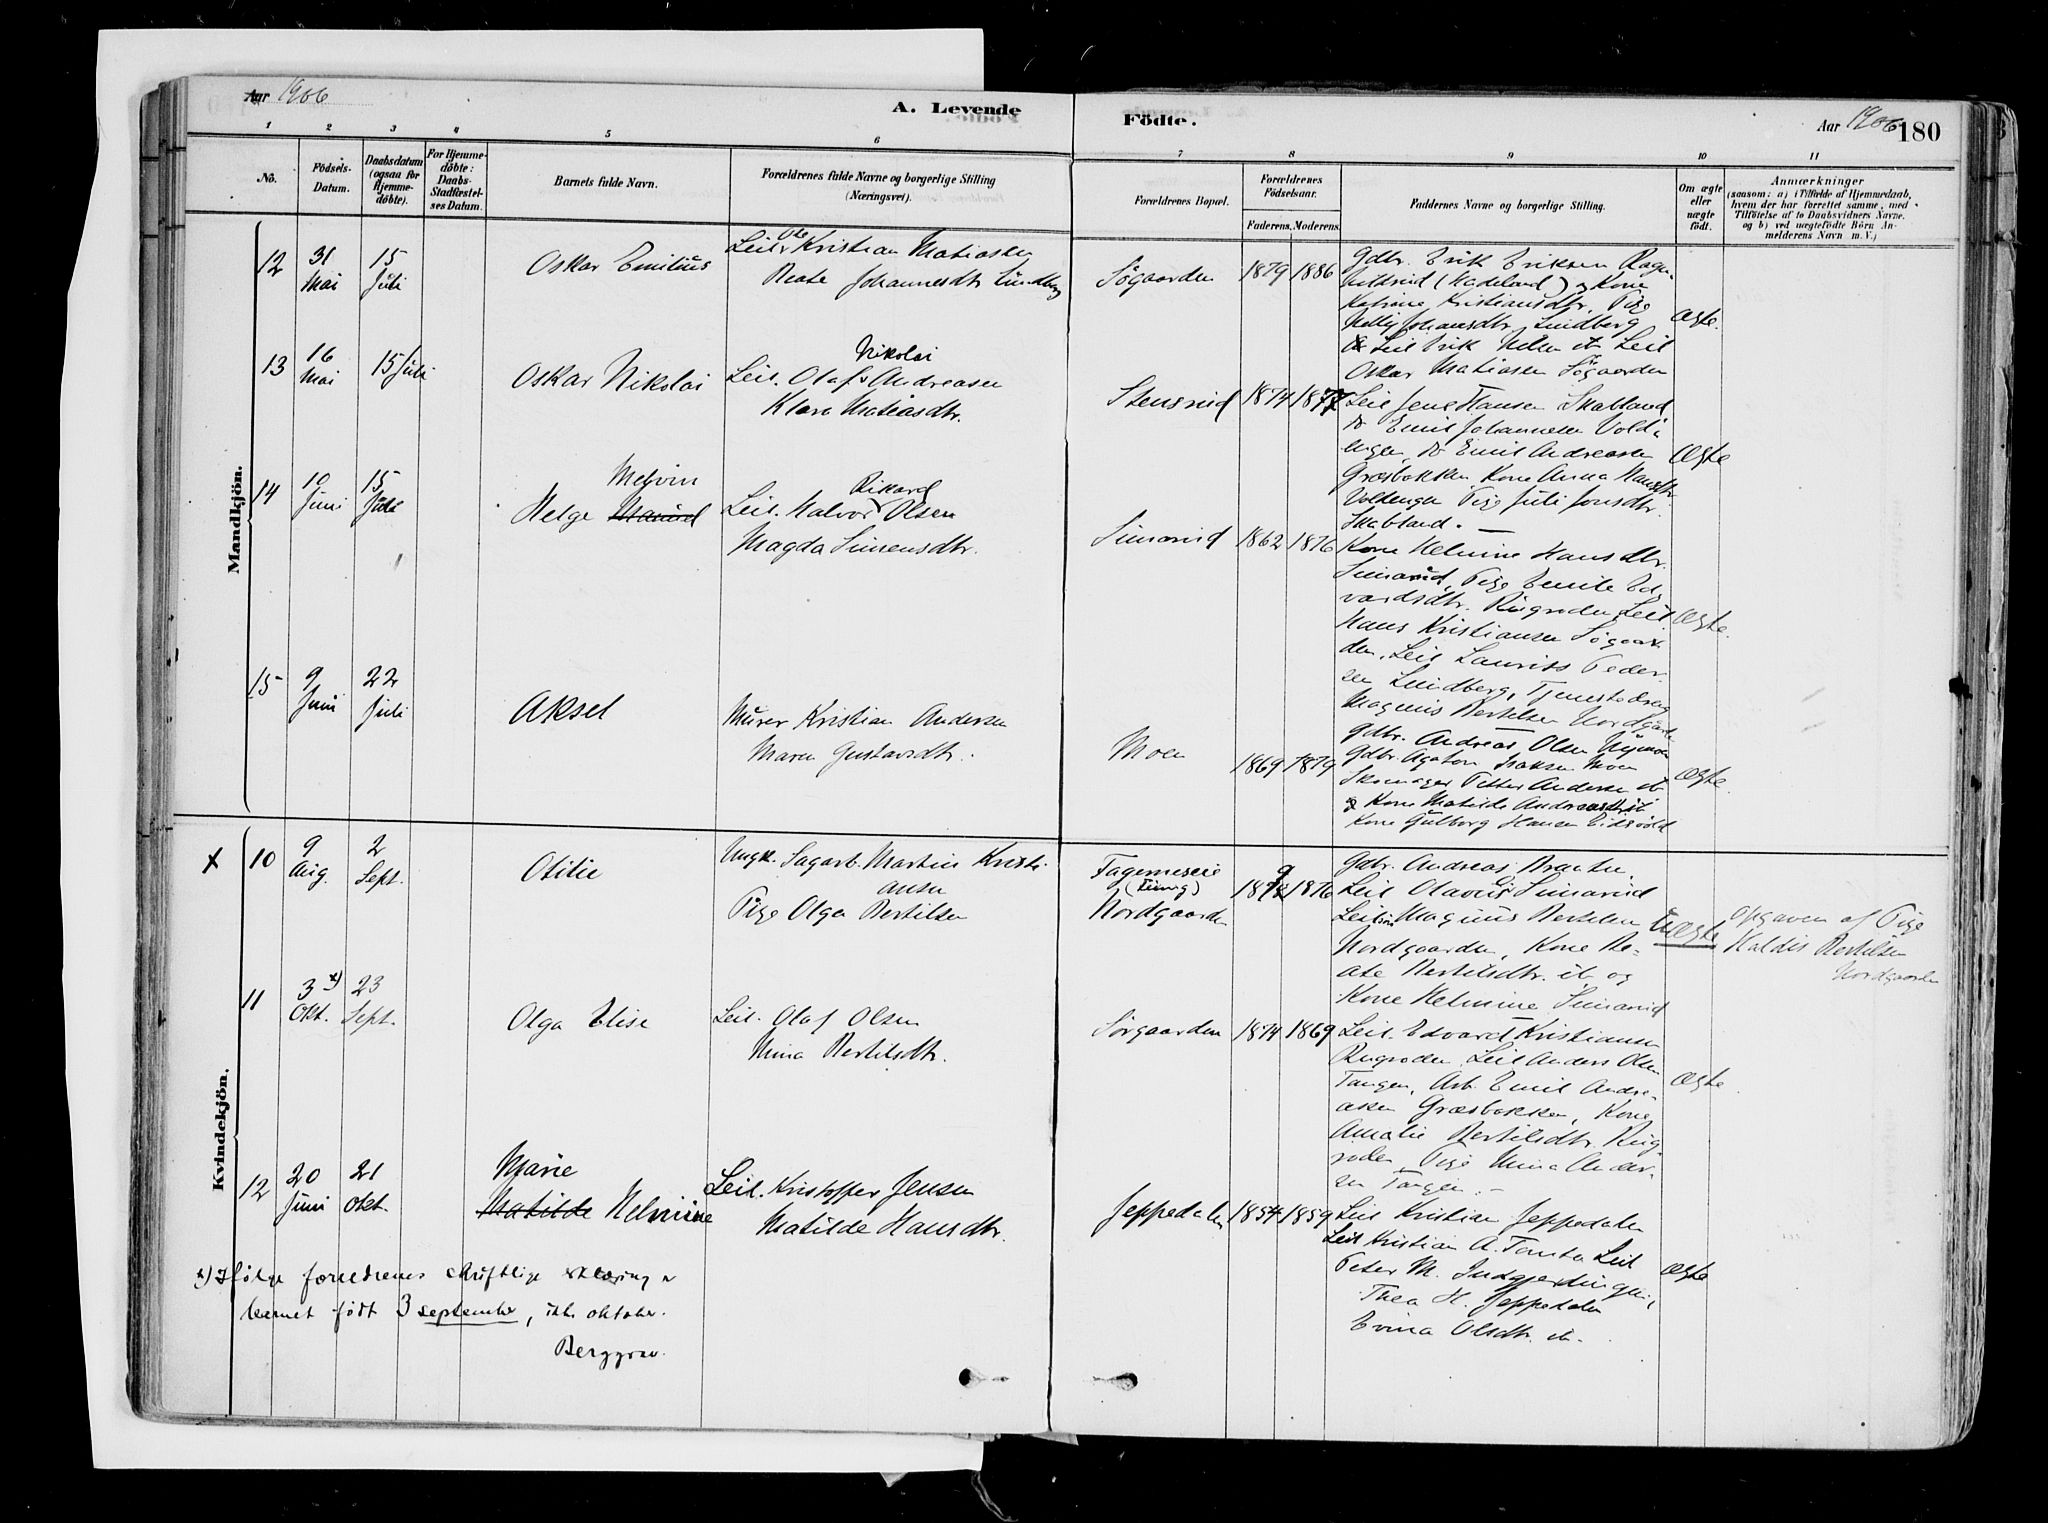 Aar 1906
A. Levende
Födte.
Aar 1906
180
1 2 3 4 5 6 7 8 9 10 11
No.
Födsels-
Datum.
Daabsdatum
(ogsaa for
Hjemme-
döbte).
For Hjemme-
döbte:
Daabs-
Stadfæstel-
ses Datum.
Barnets fulde Navn.
Forældrenes fulde Navne og borgerlige Stilling
(Næringsvei).
Forældrenes Bopæl.
Forældrenes
Födselsaar.
Faderens. Moderens.
Faddernes Navne og borgerlige Stilling.
Om ægte
eller
uægte
födt.
Anmærkninger
(saasom: a) i Tilfælde af Hjemmedaab,
hvem der har forrettet samme, med
Tilföielse af to Daabsvidners Navne,
og b) ved uægtefödte Börn An-
melderens Navn m. V.)
Mandkjön.
12
31
Mai
15
Juli
Oskar Emilius
Leil. Ole Kristian Matiasen
Beate Johannesdtr. Lundberg
Søgaarden
1879 1886
Gdbr. Erik Eriksen Ragn-
hildrud (Hadeland) og Kone
Katrine Kristiansdtr., Pige
Nelly Johansdtr. Lindberg
Leil Erik Nilsen Leil
Oskar Matiasen Søgaarden
Ægte.
13
16
Mai
15 Juli
Oskar Nikolai
Nikolai
Leil. Olaf Andreasen
Klara Matiasdtr.
Stensrud
1874 1877
Leil Jens Hansen Skabland
Do Emil Johannesen Vold-
engen, Do Emil Andreasen
Græsbakken, Kone Anna Hansdtr.
Voldengen Pige Juli Jonsdtr.
Skabland. —
Ægte
14
10
Juni
15
Juli
Melvin
Helge Manuel
Rikard
Leil. Halvor Olsen
Magda Simensdtr.
Simarud
1862 1876
Kone Helmine Hansdtr.
Simarud, Pige Emile Ed-
vardsdtr. Ringroden Leil
Hans Kristiansen Søgaar-
den, Leil Laurits Peder-
sen Lundberg, Tjenestedreng
Magnus Bertilsen Nordgaarden
Ægte.
15
9
Juni
22
Juli
Aksel
Murer Kristian Andersen
Maren Gustavsdtr.
Moen
1869 1879
Gdbr. Andreas Olsen Nymoen
Gdbr. Agaton Isaksen Moen
Skomager Petter Andersen ib
og Kone Matilde Andreasdtr. ib
Kone Gulborg Hansen Eidsvold
Ægte.
Kvindekjön.
x 10
9
Aug.
2
Sept.
Otilie
Ungk. Sagarb. Martin Kristi-
ansen
Pige Olga Bertilsen
Fagerneseie
Nordgaarden
1879 1876
Gdbr. Andreas
Leil Olavus Simarud
Leilsøn Magnus Bertilsen
Nordgaarden, Kone Be-
ate Bertilsdtr. ib og
Kone Helmine Simarud
Uægte
Opgaven af Pige
Haldis Bertilsen
Nordgaarden
11
3 x)
Okt.
23
Sept.
Olga Elise
Leil. Olaf Olsen
Mina Bertilsdtr.
Sørgaarden
1874 1869
Leil. Edvard Kristiansen
Ringroden, Leil Anders Olsen
Tangen, Arb. Emil Andre-
asen Græsbakken, Kone
Amalie Bertilsdtr. Ring-
roden, Pige Mina Ander-
sen Tangen. —
Ægte
12
20
Juni
21
Okt.
Marie
Matilde Helmine
Leil. Kristoffer Jensen
Matilde Hansdtr.
Jeppedalen
1854 1859
Leil Kristian Jeppedalen
Leil Kristian A. Tomta Leil
Peter M. Indgjerdingen,
Thea H. Jeppedalen
Evina Olsdtr. ib.
Ægte
x) Ifølge forældrenes skriftlige erklæring er
barnet født 3 september, ikke oktober.
Berggrav.